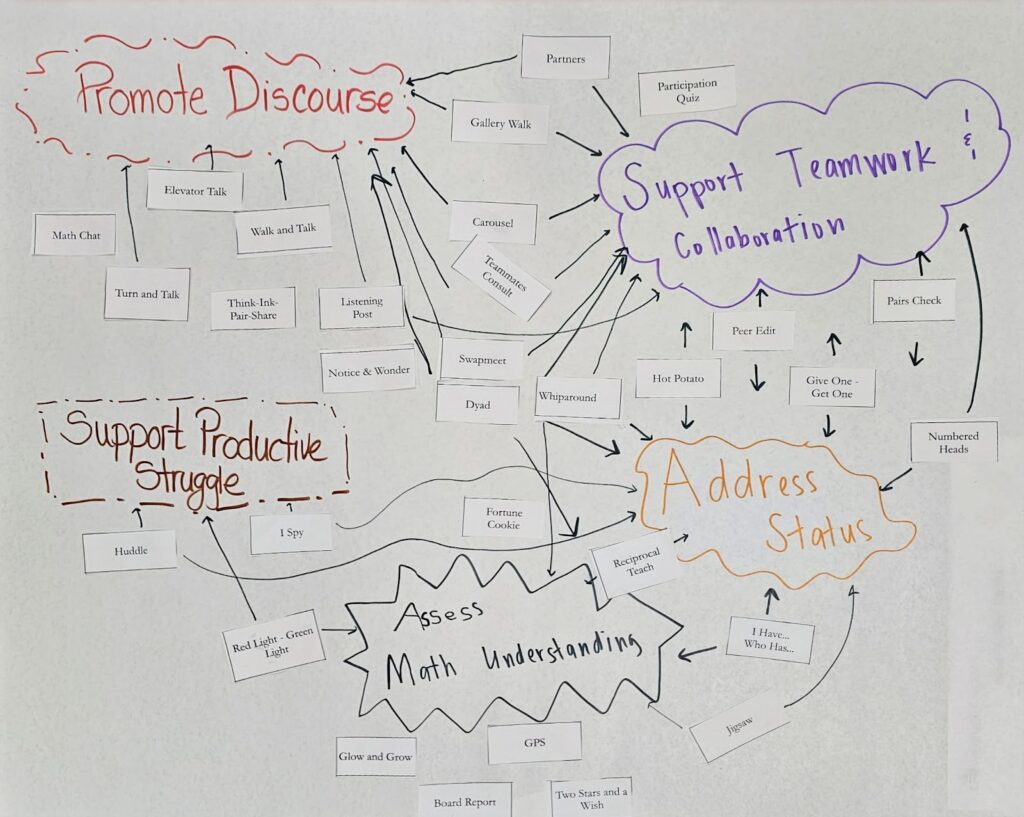 Promote Discourse
Partners
Participation
Quiz
Gallery Walk
Support Teamwork &
Collaboration
Elevator Talk
Math Chat
Walk and Talk
Carousel
Teammates
Consult
Turn and Talk
Think-Ink-
Pair-Share
Listening
Post
Pairs Check
Peer Edit
Notice & Wonder
Swapmeet
Hot Potato
Give One -
Get One
Dyad
Whiparound
Support Productive
Struggle
Numbered
Heads
Address
Status
Fortune
Cookie
I Spy
Huddle
Reciprocal
Teach
Assess
Math Understanding
Red Light - Green
Light
I Have...
Who Has...
Jigsaw
GPS
Glow and Grow
Board Report
Two Stars and a
Wish